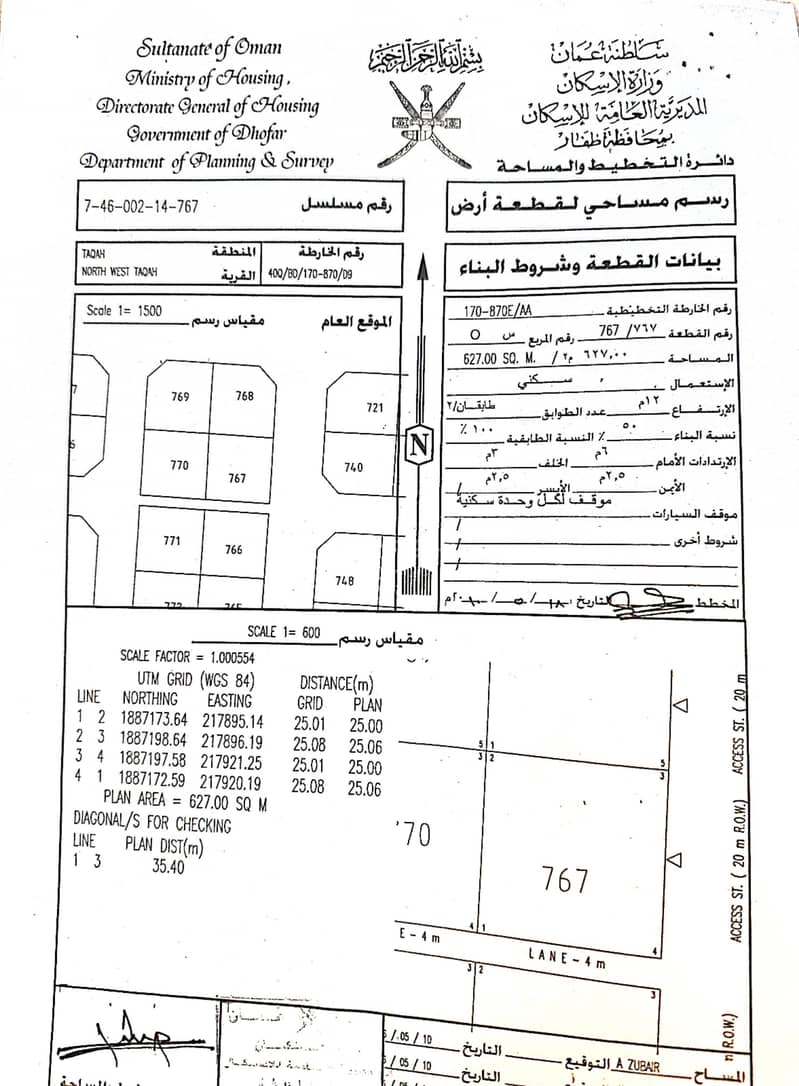 Sultanate of Oman
Ministry of Housing,
Directorate General of Housing
Government of Dhofar
Department of Planning & Survey
بسم الله الرحمن الرحيم
سلطنة عمان
وزارة الإسكان
المديرية العامة للإسكان
بمحافظة ظفار
دائرة التخطيط والمساحة
رقم مسلسل 7-46-002-14-767
رسم مساحي لقطعة أرض
المنطقة TAQAH
القرية NORTH WEST TAQAH
رقم الخارطة
40Q/BD/170-870/D9
بيانات القطعة وشروط البناء
Scale 1= 1500 مقياس رسم
الموقع العام
769
768
721
770
767
740
771
766
748
N
رقم الخارطة التخطيطية 170-870E/AA
رقم القطعة ٧٦٧/ 767 رقم المربع س O
المساحة ٦٢٧,٠٠ م٢ / 627.00 SQ. M.
الإستعمال سكني
الإرتفاع ١٢م عدد الطوابق طابقان/٢
نسبة البناء ٥٠ ٪ النسبة الطابقية ١٠٠ ٪
الإرتدادات الأمام ٦م الخلف ٣م
الأيمن ٢,٥م الأيسر ٢,٥م
موقف السيارات موقف لكل وحدة سكنية
شروط أخرى
المخطط التاريخ
SCALE 1= 600 مقياس رسم
SCALE FACTOR = 1.000554
UTM GRID (WGS 84) DISTANCE(m)
LINE NORTHING EASTING GRID PLAN
1 2 1887173.64 217895.14 25.01 25.00
2 3 1887198.64 217896.19 25.08 25.06
3 4 1887197.58 217921.25 25.01 25.00
4 1 1887172.59 217920.19 25.08 25.06
PLAN AREA = 627.00 SQ M
DIAGONAL/S FOR CHECKING
LINE PLAN DIST(m)
1 3 35.40
5 1
3 2
5
3
'70
767
4 1
4
E-4 m
LANE-4 m
3 2
3
ACCESS ST. ( 20 m
ACCESS ST. ( 20 m R.O.W.)
m R.O.W.)
/05/10 التاريخ
التوقيع A ZUBAIR
المساح
/05/10 التاريخ